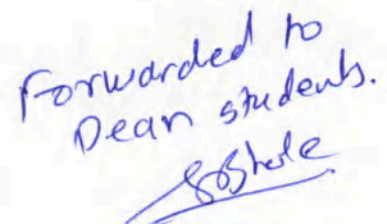 Forwarded to
Dean students.